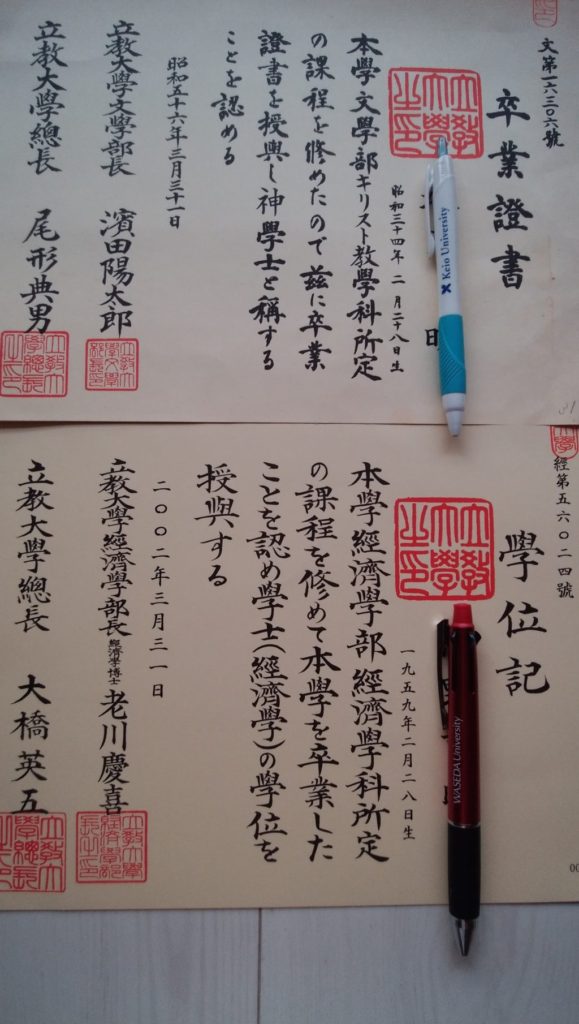 文第一六三〇六號
卒業證書
立教
大學
之印
昭和三十四年 二月二十八日生
本學文學部キリスト教學科所定
の課程を修めたので茲に卒業
證書を授與し神學士と稱する
ことを認める
昭和五十六年三月三十一日
立教大學文學部長 濱田陽太郎
立教大學總長 尾形典男
Keio University
經第五六〇二四號
學位記
立教
大學
之印
一九五九年二月二八日生
本學經濟學部經濟學科所定
の課程を修めて本學を卒業した
ことを認め學士(經濟學)の學位を
授與する
二〇〇二年三月三一日
立教大學經濟學部長 經濟学博士 老川慶喜
立教大學總長 大橋英五
WASEDA University